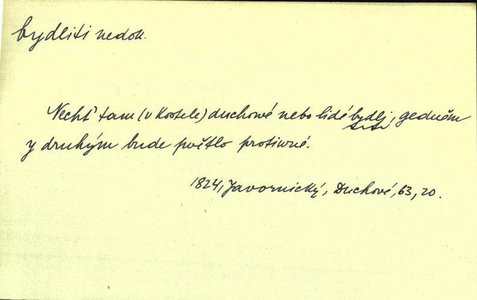 bydliti nedok.
Nechť tam (v kostele) duchowé nebo lidé bydlj, gedněm
y druhým bude swětlo protiwné.
1824, Javornický, Duchové, 63, 20.